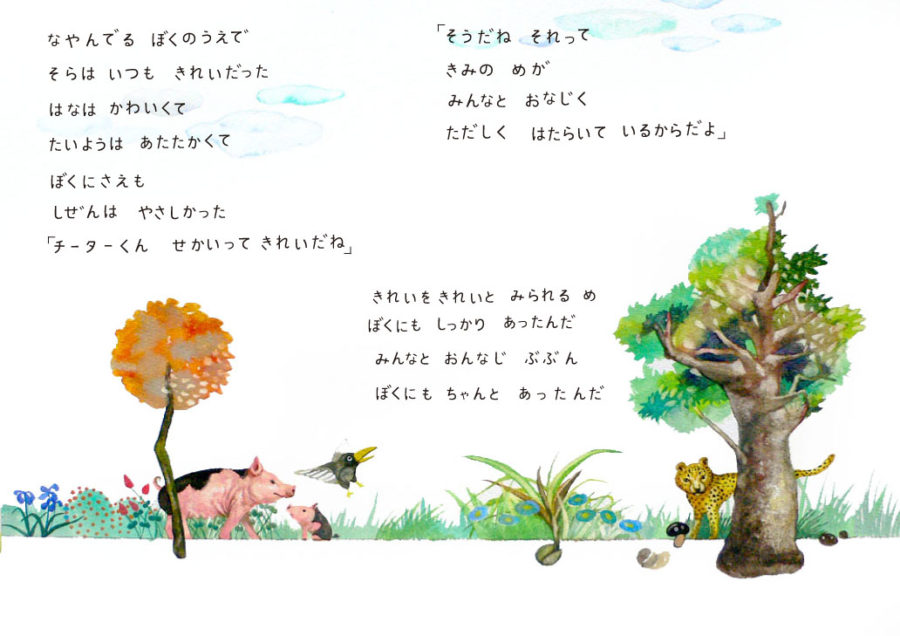 なやんでる ぼくのうえで
そらは いつも きれいだった
はなは かわいくて
たいようは あたたかくて
ぼくにさえも
しぜんは やさしかった
「チーターくん せかいって きれいだね」
「そうだね それって
きみの めが
みんなと おなじく
ただしく はたらいて いるからだよ」
きれいを きれいと みられる め
ぼくにも しっかり あったんだ
みんなと おんなじ ぶぶん
ぼくにも ちゃんと あったんだ